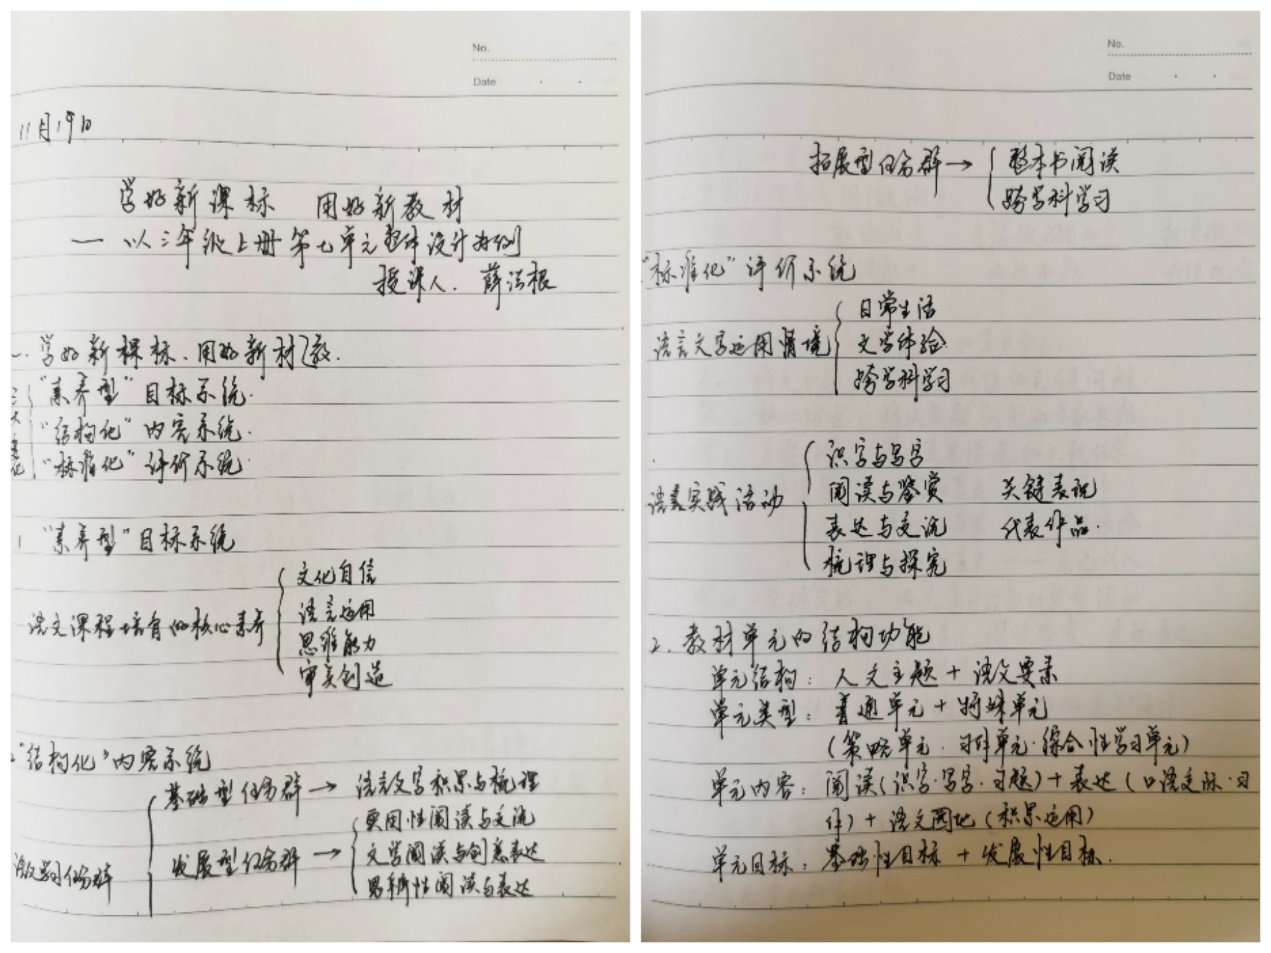 No.
Date
11月19日
学好新课标 用好新教材
—以三年级上册第七单元整体设计为例
授课人. 薛法根
一. 学好新课标、用好新教材.
三大变化
“素养型”目标系统.
“结构化”内容系统.
“标准化”评价系统.
1 “素养型”目标系统
语文课程培育的核心素养
文化自信
语言运用
思维能力
审美创造
2 “结构化”内容系统
语文学习任务群
基础型任务群 → 语言文字积累与梳理
发展型任务群 →
实用性阅读与交流
文学阅读与创意表达
思辨性阅读与表达
No.
Date
拓展型任务群 →
整本书阅读
跨学科学习
“标准化”评价系统
语言文字运用情境
日常生活
文学体验
跨学科学习
语言实践活动
识字与写字
阅读与鉴赏 关键表现
表达与交流 代表作品.
梳理与探究
2. 教材单元的结构功能
单元结构: 人文主题 + 语文要素
单元类型: 普通单元 + 特殊单元
(策略单元. 习作单元. 综合性学习单元)
单元内容: 阅读(识字.写字.习题) + 表达 (口语交际.习
作) + 语文园地 (积累运用)
单元目标: 基础性目标 + 发展性目标.